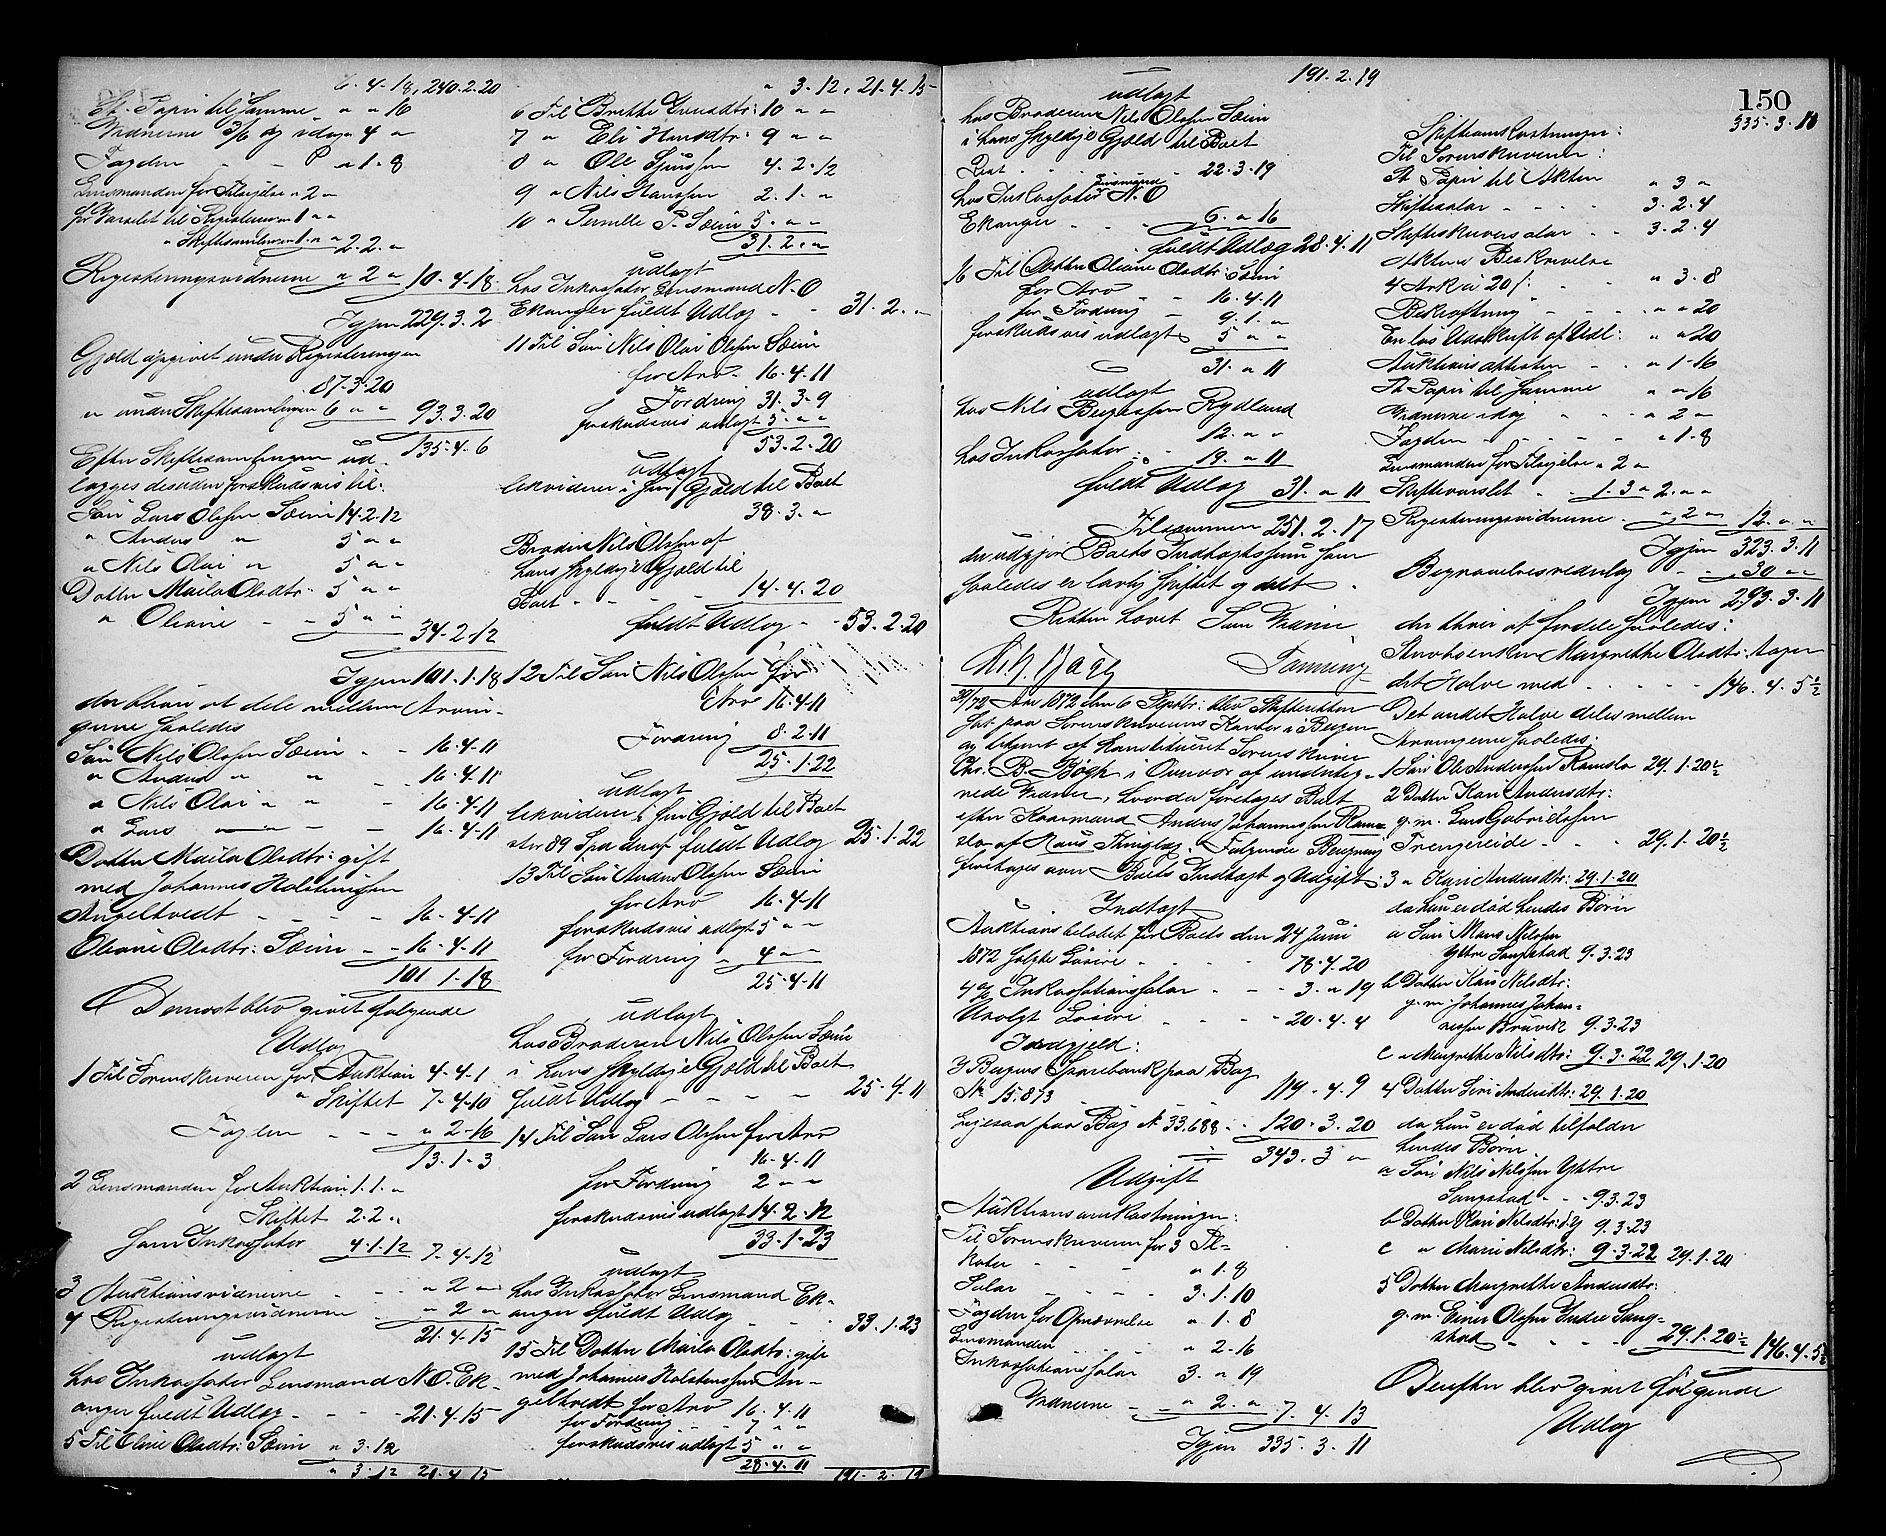 6. 4. 18, 240. 2. 20
St. Papir til Samme " " 16
Vidnerne 3/6 og idag 4 "
Fogden " 1. 8
Lensmanden for Tilsigelse " 2 "
for Varslet til Registreringen 1 " "
" Skiftesamlingen 1. " " 2. 2. "
Registreringsvidnerne " 2 " 10. 4. 18
Igjen 229. 3. 2
Gjæld opgivet under Registreringen
87. 3. 20
" under Skiftesamlingen 6 " " 93. 3. 20
135. 4. 6
Efter Skiftesamlingen ud-
lægges desuden forskudsvis til:
Søn Lars Olsen Sæim 14. 2. 12
" Anders " 5 " "
" Nils Olai " 5 " "
Datter Maila Olsdtr: 5 " "
" Oliane - - 5 " "
34. 2. 12
Igjen 101. 1. 18
der bliver at dele mellem Arvin-
gerne saaledes
Søn Nils Olsen Sæim - - 16. 4. 11
" Anders " " - 16. 4. 11
" Nils Olai " " - 16. 4. 11
" Lars " - - 16. 4. 11
Datter Maila Olsdtr: gift
med Johannes Holstensen
Angeltvedt - - - - 16. 4. 11
Oliane Olsdtr: Sæim - - 16. 4. 11
101. 1. 18
Dernæst blev givet følgende
Udlæg
1 Til Sorenskriveren for Auktion 4. 4. 1
" Skiftet 7. 4. 10
Fogden - - - " 2. 16
13. 1. 3
2 Lensmanden for Auktion 1. 1. "
Skiftet 2. 2. "
som Inkassator 4. 1. 12 7. 4. 12
3 Auktionsvidnerne - - - " 2 "
4 Registreringsvidnerne - " 2 "
21. 4. 15
udlagt
hos Inkassator Lensmand N. O. Ek-
anger fuldt Udlæg - - - 21. 4. 15
5 Til Oline Olsdtr: Sæim " 3. 12
" 3. 12 21. 4. 15
" 3. 12, 21. 4. 15
6 Til Brithe Knudsdtr: 10 " "
7 " Eli Hansdtr: 9 " "
8 " Ole Sjursen 4. 2. 12
9 " Nils Hansen 2. 1. "
10 " Pernille P. Sæim 5. " "
31. 2. "
udlagt
hos Inkassator Lensmand N. O
Ekanger fuldt Udlæg - - 31. 2. "
11 Til Søn Nils Olai Olsen Sæim
for Arv - 16. 4. 11
Fordring 31. 3. 9
forskudsvis udlagt 5. " "
53. 2. 20
udlagt
likviderer i sin Gjæld til Boet
38. 3. "
Broder Nils Olsen af
hans skyldige Gjæld til
Boet - - - - - 14. 4. 20
fuldt Udlæg - - 53. 2. 20
12 Til Søn Nils Olsen for
Arv 16. 4. 11
Fordring 8. 2. 11
25. 1. 22
udlagt
likviderer i sin Gjæld til Boet
stor 89 Spd deraf fuldt Udlæg 25. 1. 22
13 Til Søn Anders Olsen Sæim
for Arv 16. 4. 11
forskudsvis udlagt 5 " "
for Fordring " 4 " "
25. 4. 11
udlagt
hos Broderen Nils Olsen Sæim
i hans skyldige Gjæld til Boet
fuldt Udlæg - - - - - 25. 4. 11
14 Til Søn Lars Olsen for Arv
16. 4. 11
for Fordring 2 " "
forskudsvis udlagt 14. 2. 12
33. 1. 23
udlagt
hos Inkassator Lensmand Ek-
anger fuldt Udlæg - - - 33. 1. 23
15 Til Datter Maila Olsdtr: gift
med Johannes Holstensen An-
geltvedt for Arv 16. 4. 11
for Fordring - - 7 " "
forskudsvis udlagt 5 " "
28. 4. 11 191. 2. 19
191. 2. 19
udlagt
hos Broderen Nils Olsen Sæim
i hans skyldige Gjæld til Boet
Rest - - - - - 22. 3. 19
hos Inkassator Lensmand N. O
Ekanger - - - 6. " 16
fuldt Udlæg 28. 4. 11
16 Til Datter Oliane Olsdtr: Sæim
for Arv - - 16. 4. 11
for Fordring - - 9. 1. "
forskudsvis udlagt 5 " "
31. " 11
udlagt
hos Nils Børgesen Rydland
12. " "
hos Inkassator - - 19. " 11
fuldt Udlæg 31. " 11
Tilsammen 251. 2. 17
der udgjør Boets Indtægtssum som
saaledes er lovlig skiftet og delt.
Retten hævet Som Vidnier
30/72 Aar 1872 den 6 Septbr: blev Skifteretten
sat paa Sorenskriverens Kontor i Bergen
og betjent af konstitueret Sorenskriver
Chr. B. Bøgh i Overvær af underteg-
nede Vidner, hvorda foretoges Boet
efter Kaarmand Anders Johannessen Rams-
lo af Haus Thinglag. Følgende Beregning
foretoges over Boets Indtægt og Udgift:
Indtægt
Auktionsbeløbet for Boets den 24 Juni
1872 solgte Løsøre - - - - 78. 4. 20
4 % Inkassationssalær - - - 3. " 19
Usolgt Løsøre - - - - 20. 4. 4
Indgjeld:
3 Bergens Sparebank paa Bog
No 15.873 - - - - - 119. 4. 9
Ligesaa paa Bog No 33.688 - - 120. 3. 20
343. 3 "
Udgift
Auktionsomkostninger:
Til Sorenskriveren for 3 Pl-
kater - - - - " 1. 8
Salær - - - - - 3. 1. 10
Fogden for Opnævnelse " 1. 8
Lensmanden - - - " 2. 16
Inkassationssalær 3. " 19
Vidnerne - - " 2. " 7. 4. 13
Igjen 335. 3. 11
150
335. 3. 11
Skifteomkostninger:
Til Sorenskriveren:
St. Papir til Akten " 3 "
Skiftesalær - - - - 3. 2. 4
Skifteskriversalær - - 3. 2. 4
Aktens Beskrivelse
4 Ark à 20 ß: - - " 3. 8
Bekræftning - - - - " " 20
En løs Udskrift af Udl: " " 20
Auktionsattesten - - " 1. 16
St. Papir til Samme " " 16
Vidnerne idag - - - " 2 "
Fogden - - - - - " 1. 8
Lensmanden for Tilsigelse " 2 "
Skiftevarslet - - 1. 3 " 2. " "
Registreringsvidnerne - " 2 " 12. " "
Igjen 323. 3. 11
Begravelsesvederlag - - 30 " "
Igjen 293. 3. 11
der bliver at fordele saaledes:
Stervboenken Margrethe Olsdtr:
det Halve med - - - - - 146. 4. 5½
Det andet Halve deles mellem
Arvingerne saaledes:
1 Søn Ole Andersen Ramslo 29. 1. 20½
2 Datter Kari Andersdtr:
g. m. Lars Gabrielsen
Trengereide - - - 29. 1. 20½
3 " Kari Andersdtr: 29. 1. 20
da hun er død hendes Børn
a Søn Mons Nilsen
Yttre Sangstad 9. 3. 23
b Datter Kari Nilsdtr:
g. m. Johannes Johan-
nessen Bruvik 9. 3. 23
c " Margrethe Nilsdtr: 9. 3. 22 29. 1. 20
4 Datter Siri Andersdtr: 29. 1. 20
da hun er død tilfalder
hendes Børn
a Søn Nils Nilsen Yttre
Sangstad - - 9. 3. 23
b Datter Kari Nilsdtr: 9. 3. 23
c " Marie Nilsdtr: 9. 3. 22 29. 1. 20
5 Datter Margrethe Andersdtr:
g. m. Einar Olsen Indre Sang-
stad - - - - 29. 1. 20½ 146. 4. 5½
Derefter blev givet følgende
Udlæg